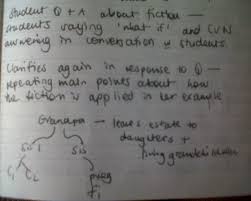 student Q + A about fiction —
students saying 'what if' and CVN
answering in conversation w students.
Clarifies again in response to Q —
repeating main points about how
the fiction is applied in her example
Grandpa — leaves estate to
daughters +
living grandchildren
Sis 1 Sis
C1 C2 preg